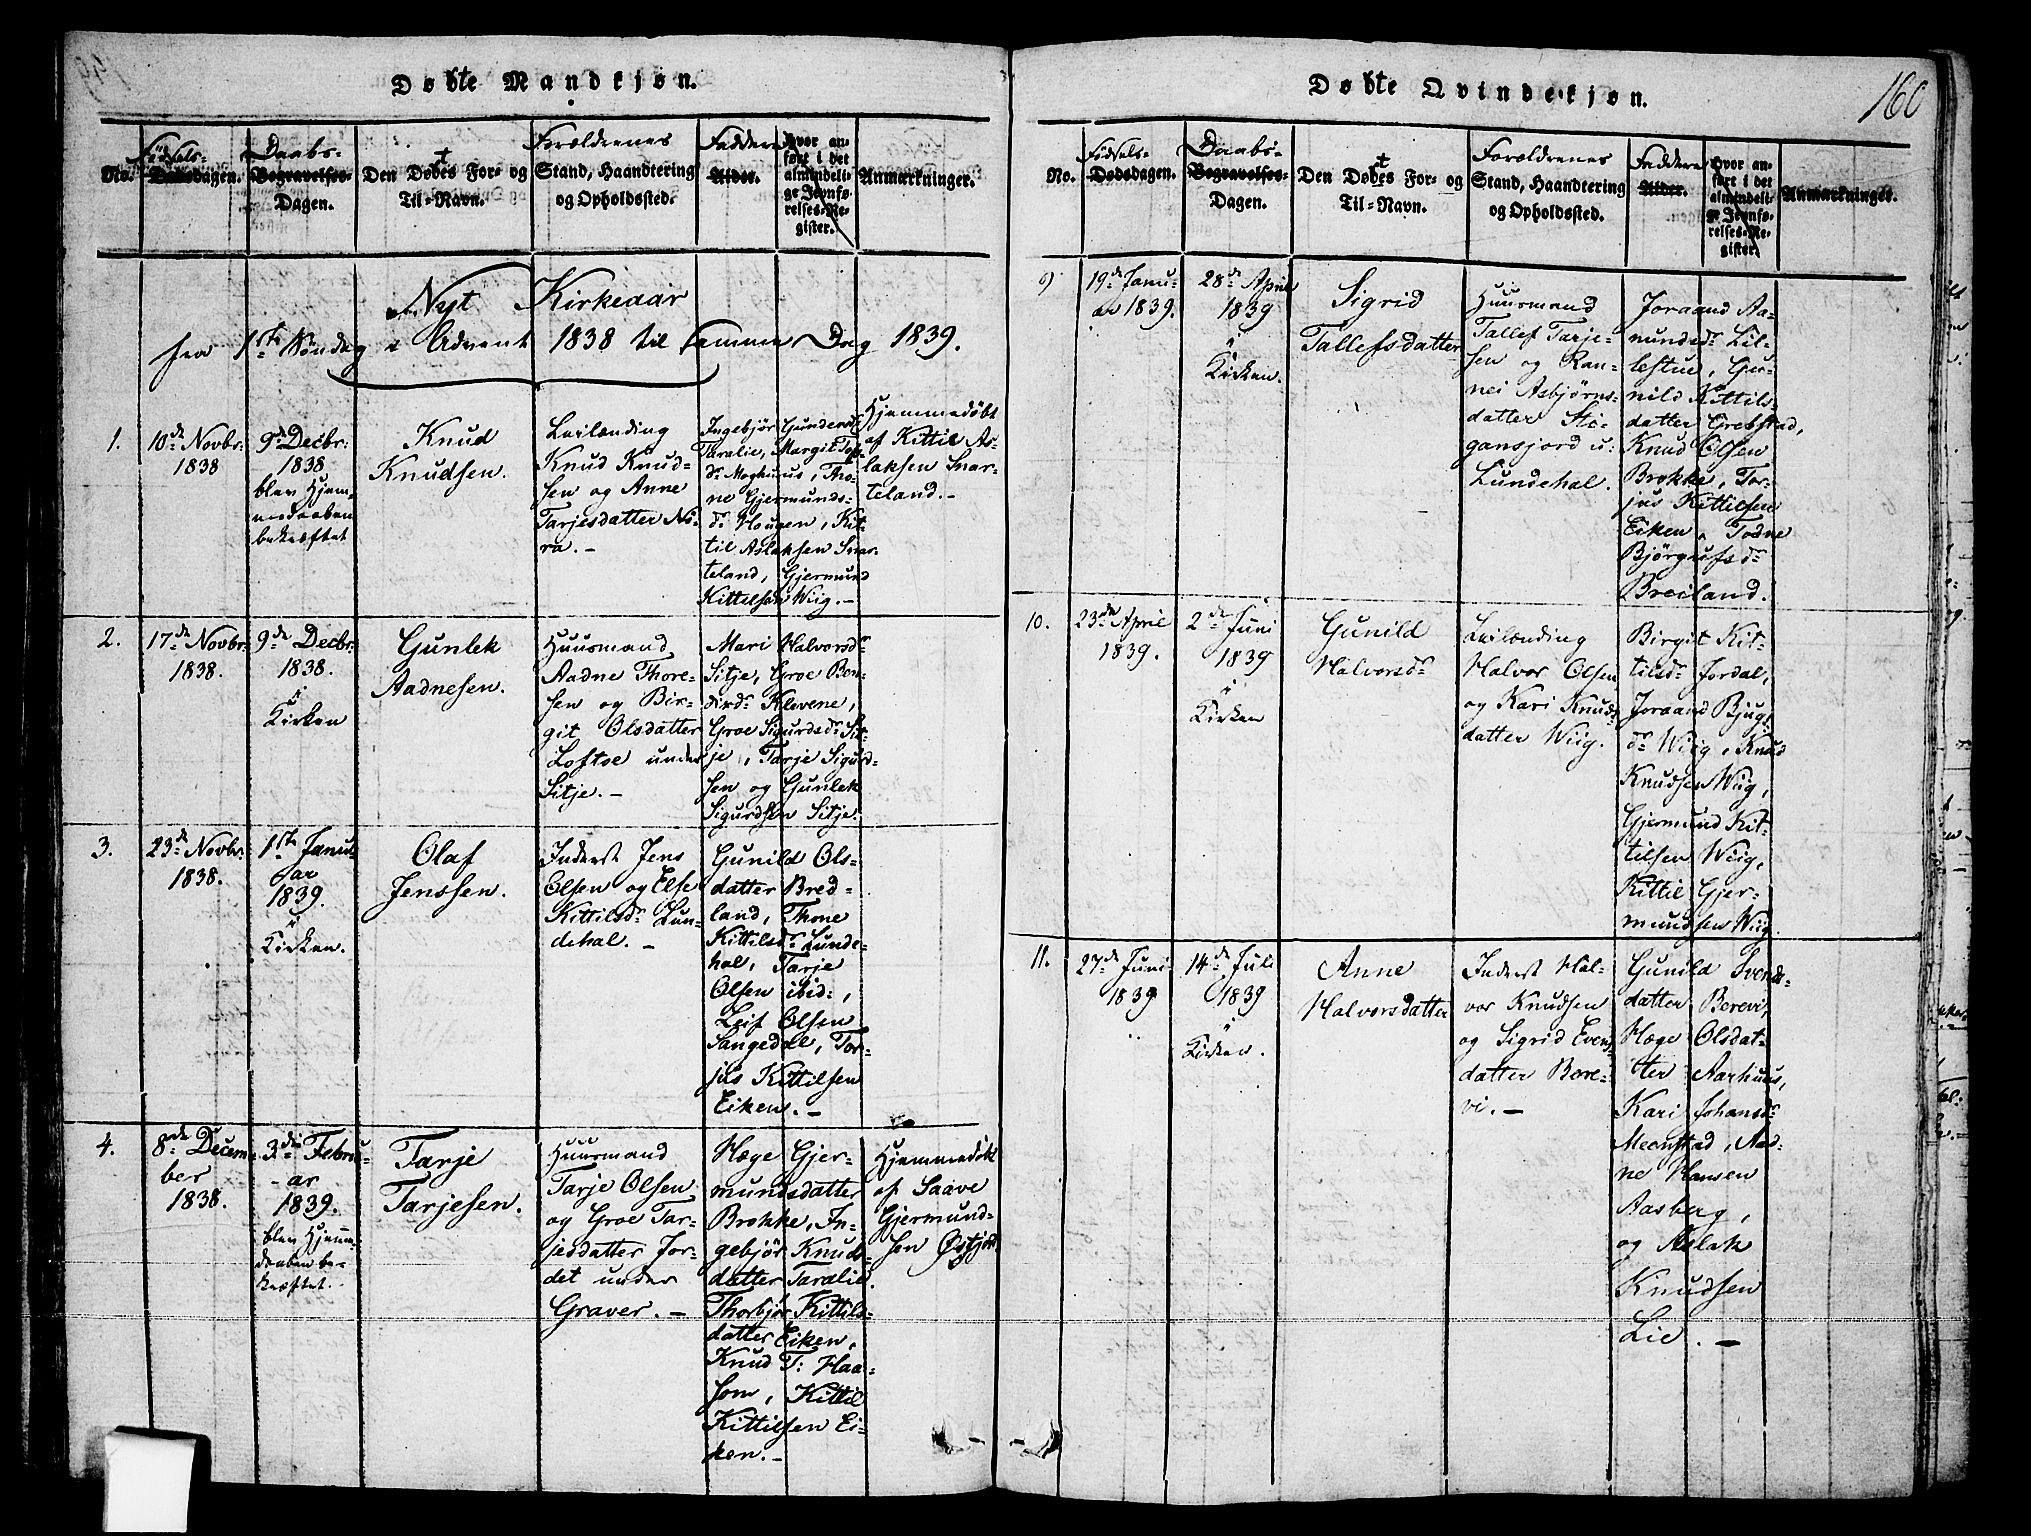 Døbte Mandkjøn.
No.
Fødsels-
Dødsdagen.
Daabs-
Begravelses-
Dagen.
Den Døbtes For- og
Til-Navn.
Forældrenes
Stand, Haandtering
og Opholdssted.
Faddere
Alder.
Hvor an-
ført i det
almindeli-
ge Jevnfø-
relses-Re-
gister.
Anmærkninger.
Nyt Kirkeaar
fra 1ste Søndag i Advent 1838 til samme Dag 1839.
1.
10de Novbr:
1838
9de Decbr:
1838
blev Hjem-
medaaben
bekræftet
Knud
Knudsen.
Leilænding
Knud Knud-
sen og Anne
Tarjesdatter No-
ra. –
Ingebjør Gundersd:
Taralie, Margit
dr Moghuus, Tho-
ne Gjermunds-
dr Hougen, Kit-
til Aslaksen Snar-
teland, Gjermund
Kittilsøn Wiig. –
Hjemmedøbt
af Kittil As-
laksen Snar-
teland. –
2.
17de Novbr:
1838.
9de Decbr:
1838.
i
Kirken
Gunlek
Aadnesen.
Huusmand
Aadne Thore-
sen og Bir-
git Olsdatter
Loftoe under
Sitje. –
Mari Halvorsdr
Sitje, Groe Ben-
dixdr Klevene,
Groe Sigurdsdr Sit-
je, Tarje Sigurd-
sen og Gunlek
Sigurdsen Sitje.
3.
23de Novbr:
1838.
1ste Janu-
ar
1839.
i
Kirken.
Olaf
Jenssen.
Inderst Jens
Olsen og Else
Kittilsdr Lun-
dehal. –
Gunild Ols-
datter Bred-
land, Thone
Kittilsdr Lunde-
hal, Tarje
Olsen ibid:,
Leif Olsen
Langedal, Tor-
jus Kittilsen
Eiken. –
4.
8de Decem-
ber
1838.
3de Febru-
ar
1839.
blev Hjemme-
daaben be-
kræftet.
Tarje
Tarjesen.
Huusmand
Tarje Olsen
og Groe Tar-
jesdatter Jor-
det under
Graver. –
Hæge Gjer-
mundsdatter
Brokke, In-
gebjør Knuds-
datter Taralie.
Thorbjør Kittils-
datter Eiken,
Knud T: Haa-
som, Kittil
Kittilsen Ei-
ken. –
Hjemmedøbt
af Saave
Gjermund-
sen Østjord
160
Døbte Qvindekjøn.
No.
Fødsels-
Dødsdagen.
Daabs-
Begravelses-
Dagen.
Den Døbtes For- og
Til-Navn.
Forældrenes
Stand, Haandtering
og Opholdssted.
Faddere
Alder.
Hvor an-
ført i det
almindeli-
ge Jevnfø-
relses-Re-
gister.
Anmærkninger.
9)
19de Janu-
ar 1839.
28de April
1839
i
Kirken.
Sigrid
Tallefsdatter
Huusmand
Tallef Tarje-
sen og Ran-
nei Asbjørns-
datter Sti-
gansjord u:
Lundehal.
Joraand Aa-
mundsdr Lil-
lestue, Gu-
nild Kittils-
datter Grebstad,
Knud Olsen
Brokke, Tor-
jus Kittilsen
Eiken, Todne
Bjørgufsdr
Breiland.
10.
23de April
1839.
2de Juni
1839
i
Kirken
Gunild
Halvorsdr
Leilænding
Halvor Olsen
og Kari Knuds-
datter Wiig.
Birgit Kit-
tilsdr Jordal,
Joraand Bjugs-
dr Wiig, Knud
Knudsen Wiig,
Gjermund Kit-
tilsen Wiig,
Kittil Gjer-
mundsen Wiig.
11.
27de Juni
1839
14de Juli
1839
i
Kirken.
Anne
Halvorsdatter
Inderst Hal-
vor Knudsen
og Sigrid Evens-
datter Bere-
vi. –
Gunild Svends-
datter Berevi,
Hæge Olsdat-
ter Aarhuus,
Kari Johansdr
Meenstad, Aad-
ne Hansen
Aasberg,
og Aslak
Knudsen
Lie. –